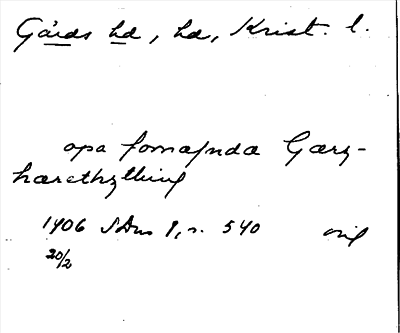 Gärds hd, hd, Krist. l.
opa fornæfnda Gærz-
harethzthing
1406 SDns 1, s. 540 orig
20/2